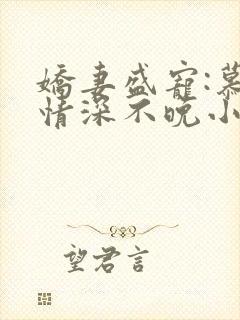 嬌妻盛寵:慕
情深不晚小
望君言